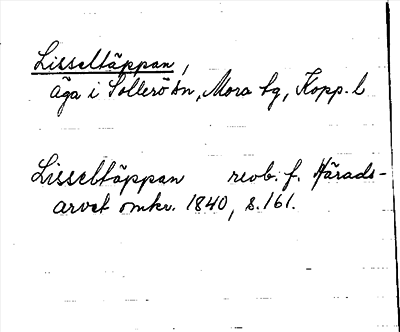 Lisseltäppan,
äga i Sollerö sn, Mora tg, Kopp. l
Lisseltäppan reob. f. Härads-
arvet omkr. 1840, s. 161.